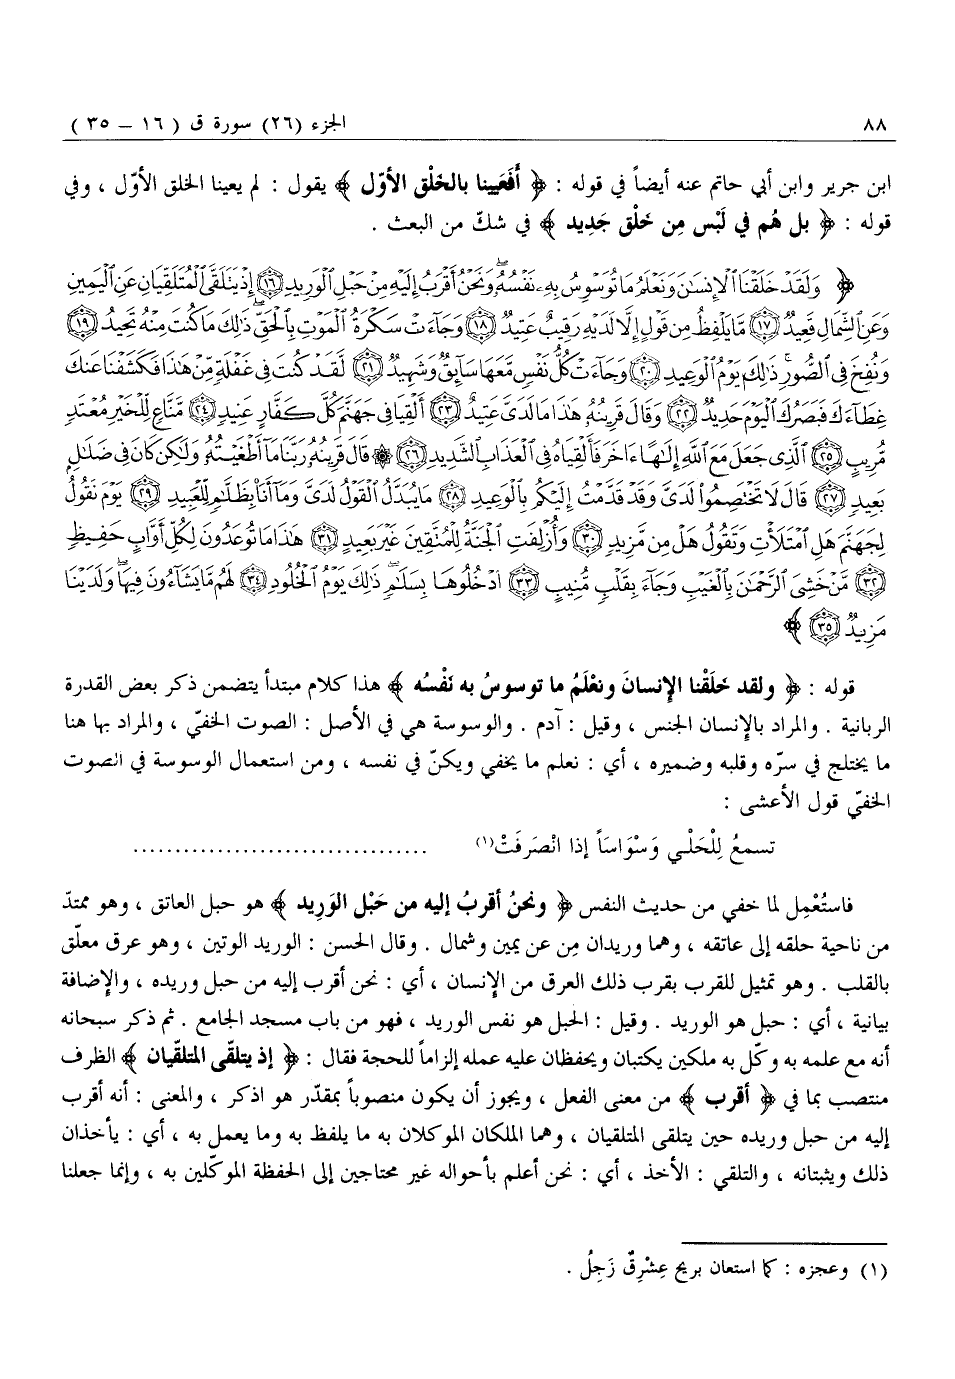 ٨٨ الجزء (٢٦) سورة ق ( ١٦ – ٣٥ )
ابن جرير وابن أبي حاتم عنه أيضاً في قوله : ﴿ أَفَعَيينا بالخَلْق الأوّل ﴾ يقول : لم يعينا الخلق الأوّل ، وفي
قوله : ﴿ بل هُم في لَبْس مِن خَلْق جَدِيد ﴾ في شكّ من البعث .
﴿ وَلَقَدْ خَلَقْنَا ٱلْإِنسَٰنَ وَنَعْلَمُ مَا تُوَسْوِسُ بِهِۦ نَفْسُهُۥۖ وَنَحْنُ أَقْرَبُ إِلَيْهِ مِنْ حَبْلِ ٱلْوَرِيدِ ١٦ إِذْ يَتَلَقَّى ٱلْمُتَلَقِّيَانِ عَنِ ٱلْيَمِينِ
وَعَنِ ٱلشِّمَالِ قَعِيدٌ ١٧ مَّا يَلْفِظُ مِن قَوْلٍ إِلَّا لَدَيْهِ رَقِيبٌ عَتِيدٌ ١٨ وَجَآءَتْ سَكْرَةُ ٱلْمَوْتِ بِٱلْحَقِّۖ ذَٰلِكَ مَا كُنتَ مِنْهُ تَحِيدُ ١٩
وَنُفِخَ فِى ٱلصُّورِۚ ذَٰلِكَ يَوْمُ ٱلْوَعِيدِ ٢٠ وَجَآءَتْ كُلُّ نَفْسٍ مَّعَهَا سَآئِقٌ وَشَهِيدٌ ٢١ لَّقَدْ كُنتَ فِى غَفْلَةٍ مِّنْ هَٰذَا فَكَشَفْنَا عَنكَ
غِطَآءَكَ فَبَصَرُكَ ٱلْيَوْمَ حَدِيدٌ ٢٢ وَقَالَ قَرِينُهُۥ هَٰذَا مَا لَدَىَّ عَتِيدٌ ٢٣ أَلْقِيَا فِى جَهَنَّمَ كُلَّ كَفَّارٍ عَنِيدٍ ٢٤ مَّنَّاعٍ لِّلْخَيْرِ مُعْتَدٍ
مُّرِيبٍ ٢٥ ٱلَّذِى جَعَلَ مَعَ ٱللَّهِ إِلَٰهًا ءَاخَرَ فَأَلْقِيَاهُ فِى ٱلْعَذَابِ ٱلشَّدِيدِ ٢٦ ۞ قَالَ قَرِينُهُۥ رَبَّنَا مَآ أَطْغَيْتُهُۥ وَلَٰكِن كَانَ فِى ضَلَٰلٍۭ
بَعِيدٍ ٢٧ قَالَ لَا تَخْتَصِمُوا۟ لَدَىَّ وَقَدْ قَدَّمْتُ إِلَيْكُم بِٱلْوَعِيدِ ٢٨ مَا يُبَدَّلُ ٱلْقَوْلُ لَدَىَّ وَمَآ أَنَا۠ بِظَلَّٰمٍ لِّلْعَبِيدِ ٢٩ يَوْمَ نَقُولُ
لِجَهَنَّمَ هَلِ ٱمْتَلَأْتِ وَتَقُولُ هَلْ مِن مَّزِيدٍ ٣٠ وَأُزْلِفَتِ ٱلْجَنَّةُ لِلْمُتَّقِينَ غَيْرَ بَعِيدٍ ٣١ هَٰذَا مَا تُوعَدُونَ لِكُلِّ أَوَّابٍ حَفِيظٍ
٣٢ مَّنْ خَشِىَ ٱلرَّحْمَٰنَ بِٱلْغَيْبِ وَجَآءَ بِقَلْبٍ مُّنِيبٍ ٣٣ ٱدْخُلُوهَا بِسَلَٰمٍۖ ذَٰلِكَ يَوْمُ ٱلْخُلُودِ ٣٤ لَهُم مَّا يَشَآءُونَ فِيهَا وَلَدَيْنَا
مَزِيدٌ ٣٥ ﴾
قوله : ﴿ ولقد خَلَقْنا الإنسانَ ونعْلَمُ ما توسوسُ به نَفْسُه ﴾ هذا كلام مبتدأ يتضمن ذكر بعض القدرة
الربانية . والمراد بالإنسان الجنس ، وقيل : آدم . والوسوسة هي في الأصل : الصوت الخفيّ ، والمراد بها هنا
ما يختلج في سرّه وقلبه وضميره ، أي : نعلم ما يخفي ويكنّ في نفسه ، ومن استعمال الوسوسة في الصوت
الخفيّ قول الأعشى :
تسمعُ لِلْحَلْي وَسْوَاسَاً إذا انْصَرفَتْ(١) ..................................
فاستُعْمِل لما خفي من حديث النفس ﴿ ونحنُ أقربُ إليه من حَبْل الوَرِيد ﴾ هو حبل العاتق ، وهو ممتدّ
من ناحية حلقه إلى عاتقه ، وهما وريدان مِن عن يمين وشمال . وقال الحسن : الوريد الوتين ، وهو عرق معلّق
بالقلب . وهو تمثيل للقرب بقرب ذلك العرق من الإنسان ، أي : نحن أقرب إليه من حبل وريده ، والإضافة
بيانية ، أي : حبل هو الوريد . وقيل : الحبل هو نفس الوريد ، فهو من باب مسجد الجامع . ثم ذكر سبحانه
أنه مع علمه به وكّل به ملكين يكتبان ويحفظان عليه عمله إلزاماً للحجة فقال : ﴿ إذ يتلقّى المتلقيان ﴾ الظرف
منتصب بما في ﴿ أقرب ﴾ من معنى الفعل ، ويجوز أن يكون منصوباً بمقدّر هو اذكر ، والمعنى : أنه أقرب
إليه من حبل وريده حين يتلقى المتلقيان ، وهما الملكان الموكلان به ما يلفظ به وما يعمل به ، أي : يأخذان
ذلك ويثبتانه ، والتلقي : الأخذ ، أي : نحن أعلم بأحواله غير محتاجين إلى الحفظة الموكّلين به ، وإنما جعلنا
(١) وعجزه : كما استعان بريح عِشْرِقٌ زَجِلُ .